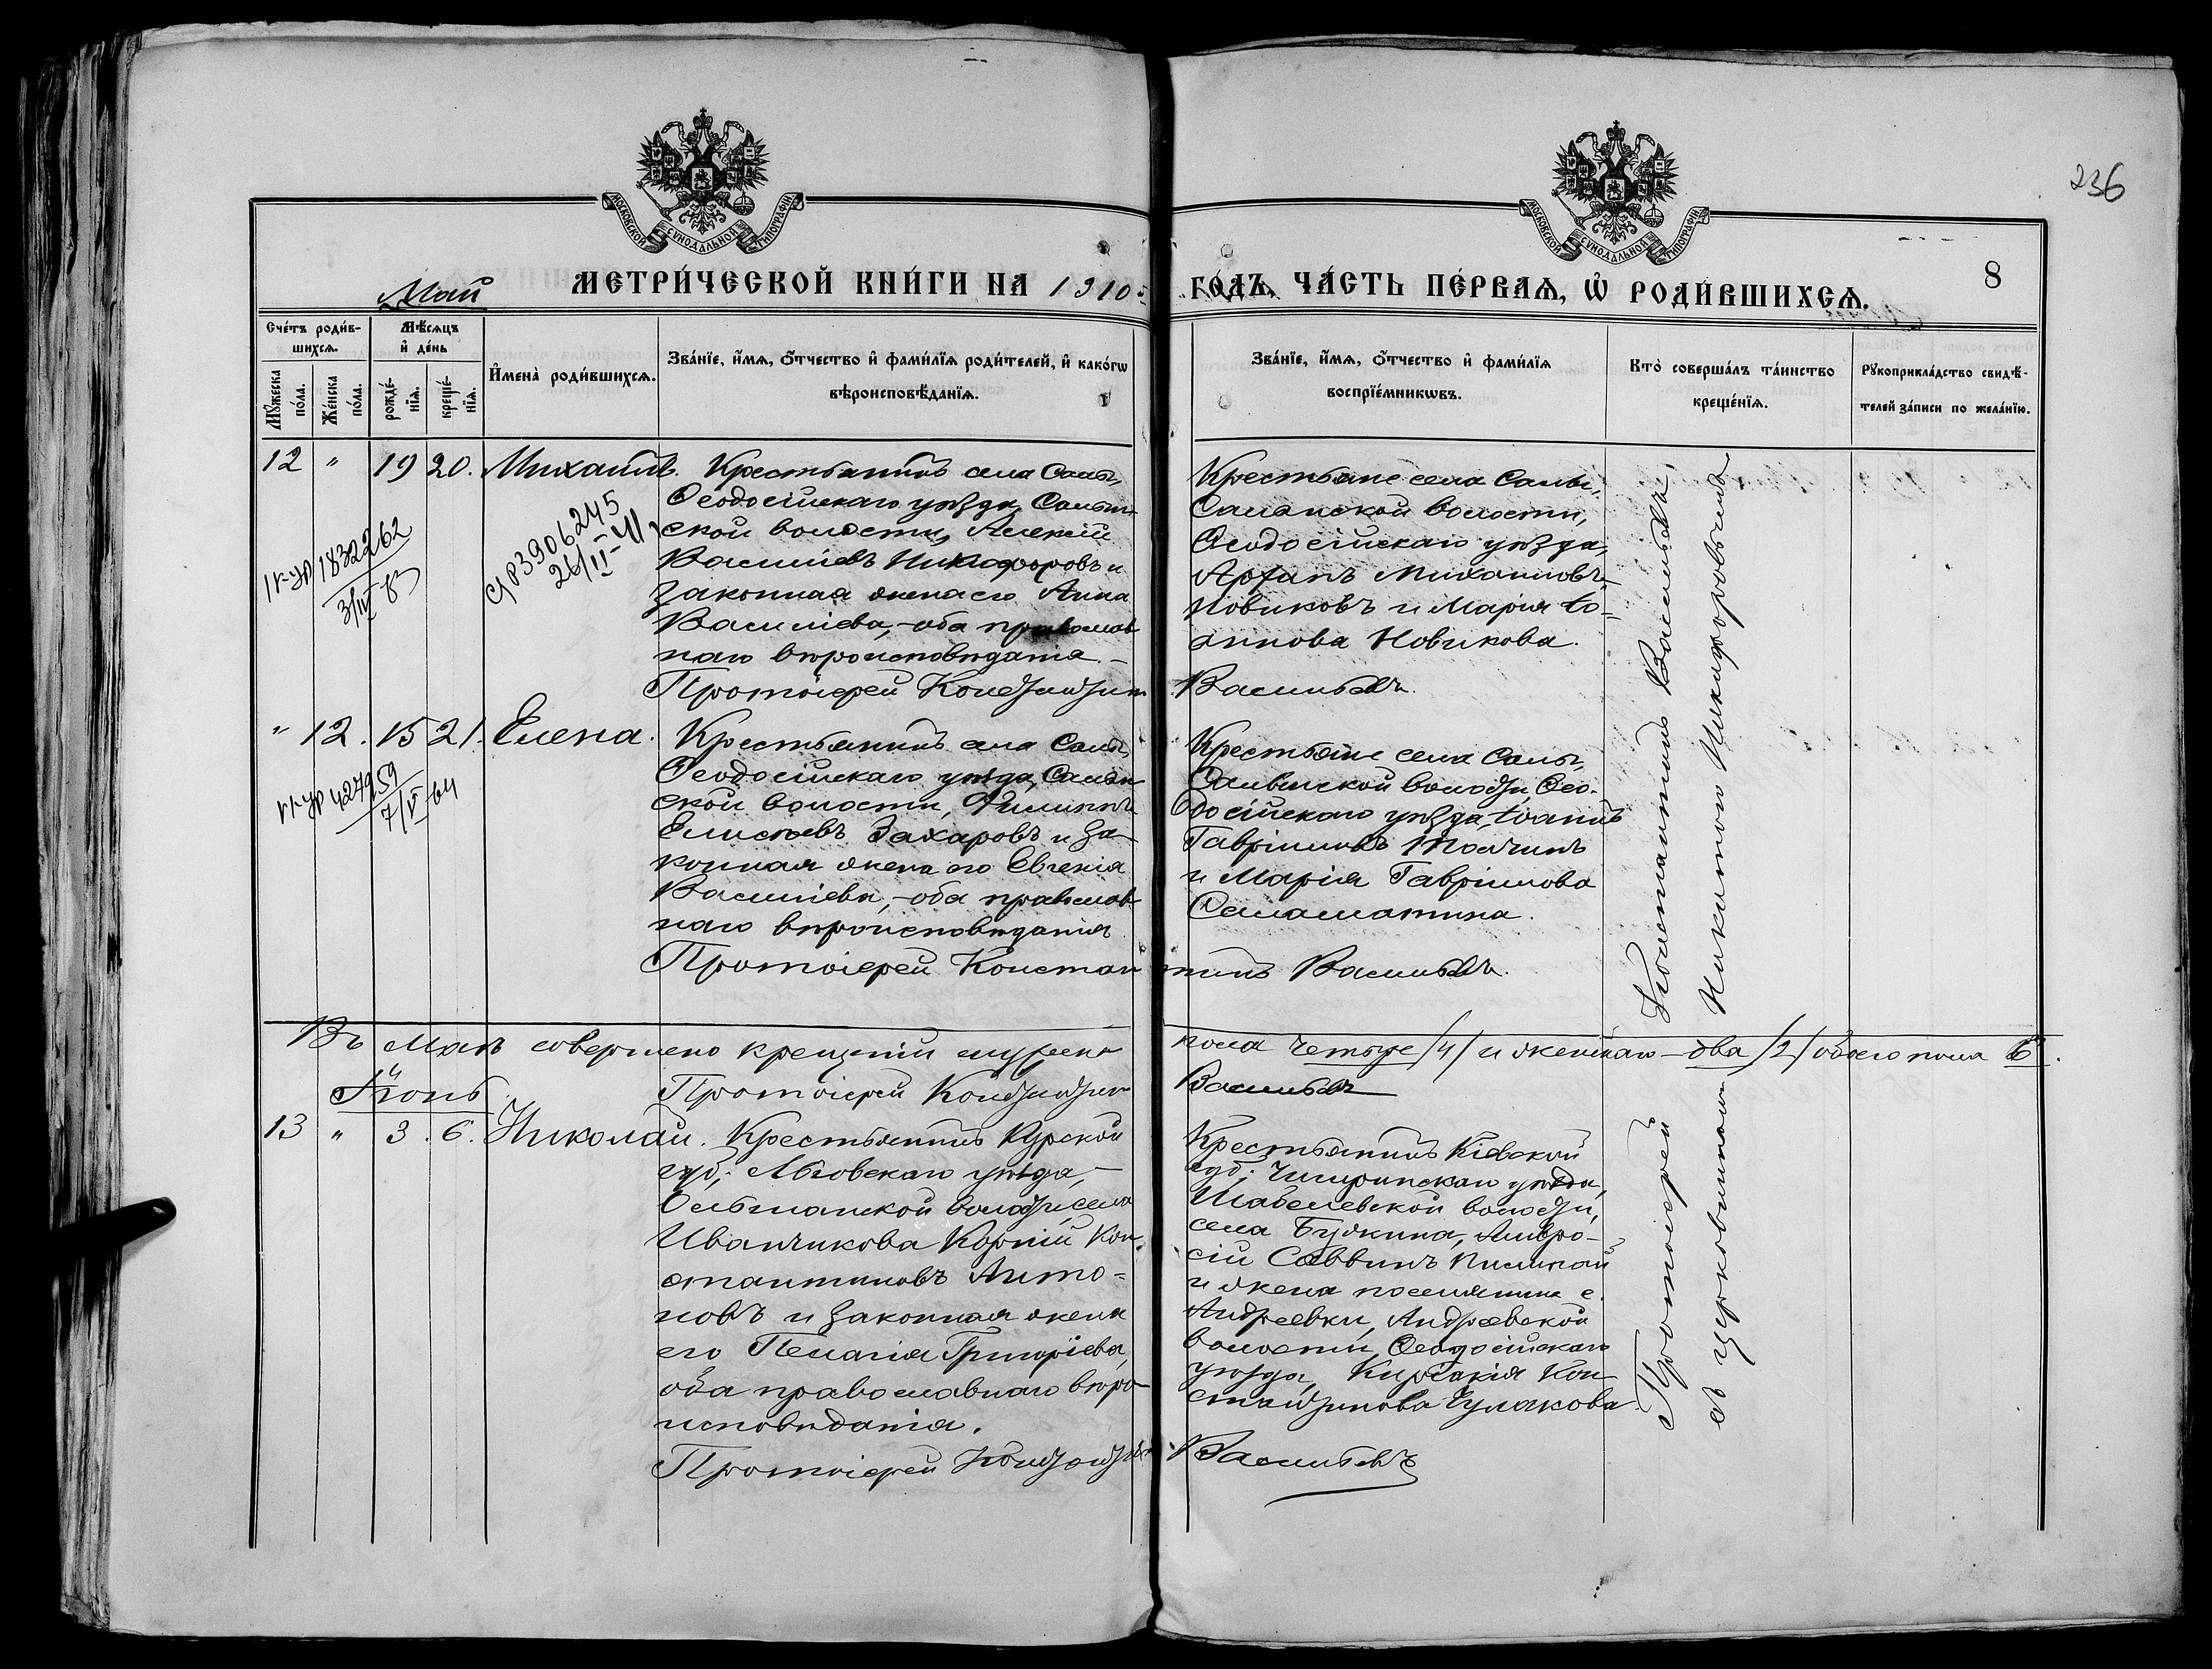 236
МОСКОВСКОЙ СѴНОДАЛЬНОЙ ТИПОГРАФІИ
МОСКОВСКОЙ СѴНОДАЛЬНОЙ ТИПОГРАФІИ
Май
МЕТРИ́ЧЕСКОЙ КНИ́ГИ НА 1910
ГО́ДЪ, ЧА́СТЬ ПЕ́РВАѦ, Ѡ҆ РОДИ́ВШИХСѦ.
8
Сче́тъ роди́в-
шихсѧ.
Мꙋ́жеска по́ла.
Же́нска по́ла.
Мѣ́сѧцъ
и҆ де́нь
рожде́-
нїѧ.
креще́-
нїѧ.
И҆мена̀ роди́вшихсѧ.
Зва́нїе, и҆́мѧ, ѻ҆́тчество и҆ фами́лїѧ роди́телей, и҆ како́гѡ
вѣроисповѣ́данїѧ.
Зва́нїе, и҆́мѧ, ѻ҆́тчество и҆ фами́лїѧ
воспрїе́мникѡвъ.
Кто̀ соверша́лъ та́инство
креще́нїѧ.
Рꙋкоприкла́дство свидѣ́-
телей за́писи по жела́нїю.
12 " 19 20. Михаилъ
1832262
3906245
26/II-41
Крестьянинъ села Салы,
Ѳеодосійскаго уѣзда, Салын-
ской волости, Алексій
Васильевъ Никифоровъ и
законная жена его Анна
Василіева, - оба православ
наго вѣроисповѣданія. -
Протоіерей Константин
Крестьяне села Салы,
Салынской волости,
Ѳеодосійскаго уѣзда,
Михаиловъ
Новиковъ и Марія Іо-
аннова Новикова.
Васильевъ.
" 12. 15 21. Елена.
427959
7/V-64
Крестьянинъ села Салы,
Ѳеодосійскаго уѣзда, Салын
ской волости, Филиппъ
Елисѣевъ Захаровъ и за-
конная жена его Евгенія
Василіева, - оба православ
наго вѣроисповѣданія
Протоіерей Констан
Крестьяне села Салы,
Салынской волости, Ѳео-
досійскаго уѣзда, Іоаннъ
Гавріиловъ
и Марія Гавріилова
Саламатина.
тинъ Васильевъ.
Константинъ Васильевъ
Никифоровымъ
Въ Маѣ совершено крещеній мужеска
пола четыре /4/ и женскаго - два /2/ обоего пола 6.
Протоіерей Константин
Васильевъ
Іюнь
13 " 3. 6. Николай.
Крестьянинъ Курской
губ; Льговскаго уѣзда,
Ольшанской волости, села
Иванчикова Корній Кон-
стантиновъ Анто-
новъ и законная жена
его Пелагія Григоріева,
оба православнаго вѣро-
исповѣданія.
Протоіерей Константин
Крестьянинъ Кіевской
губ: Чигиринскаго уѣзда,
Шабелевской волости,
села Будкина, Амвро-
сій Саввинъ
и жена поселянина с.
Андреевки, Андреевской
волости, Ѳеодосійскаго
уѣзда, Киріакія Кон-
стантинова Чулакова
Васильевъ
Протоіерей
съ